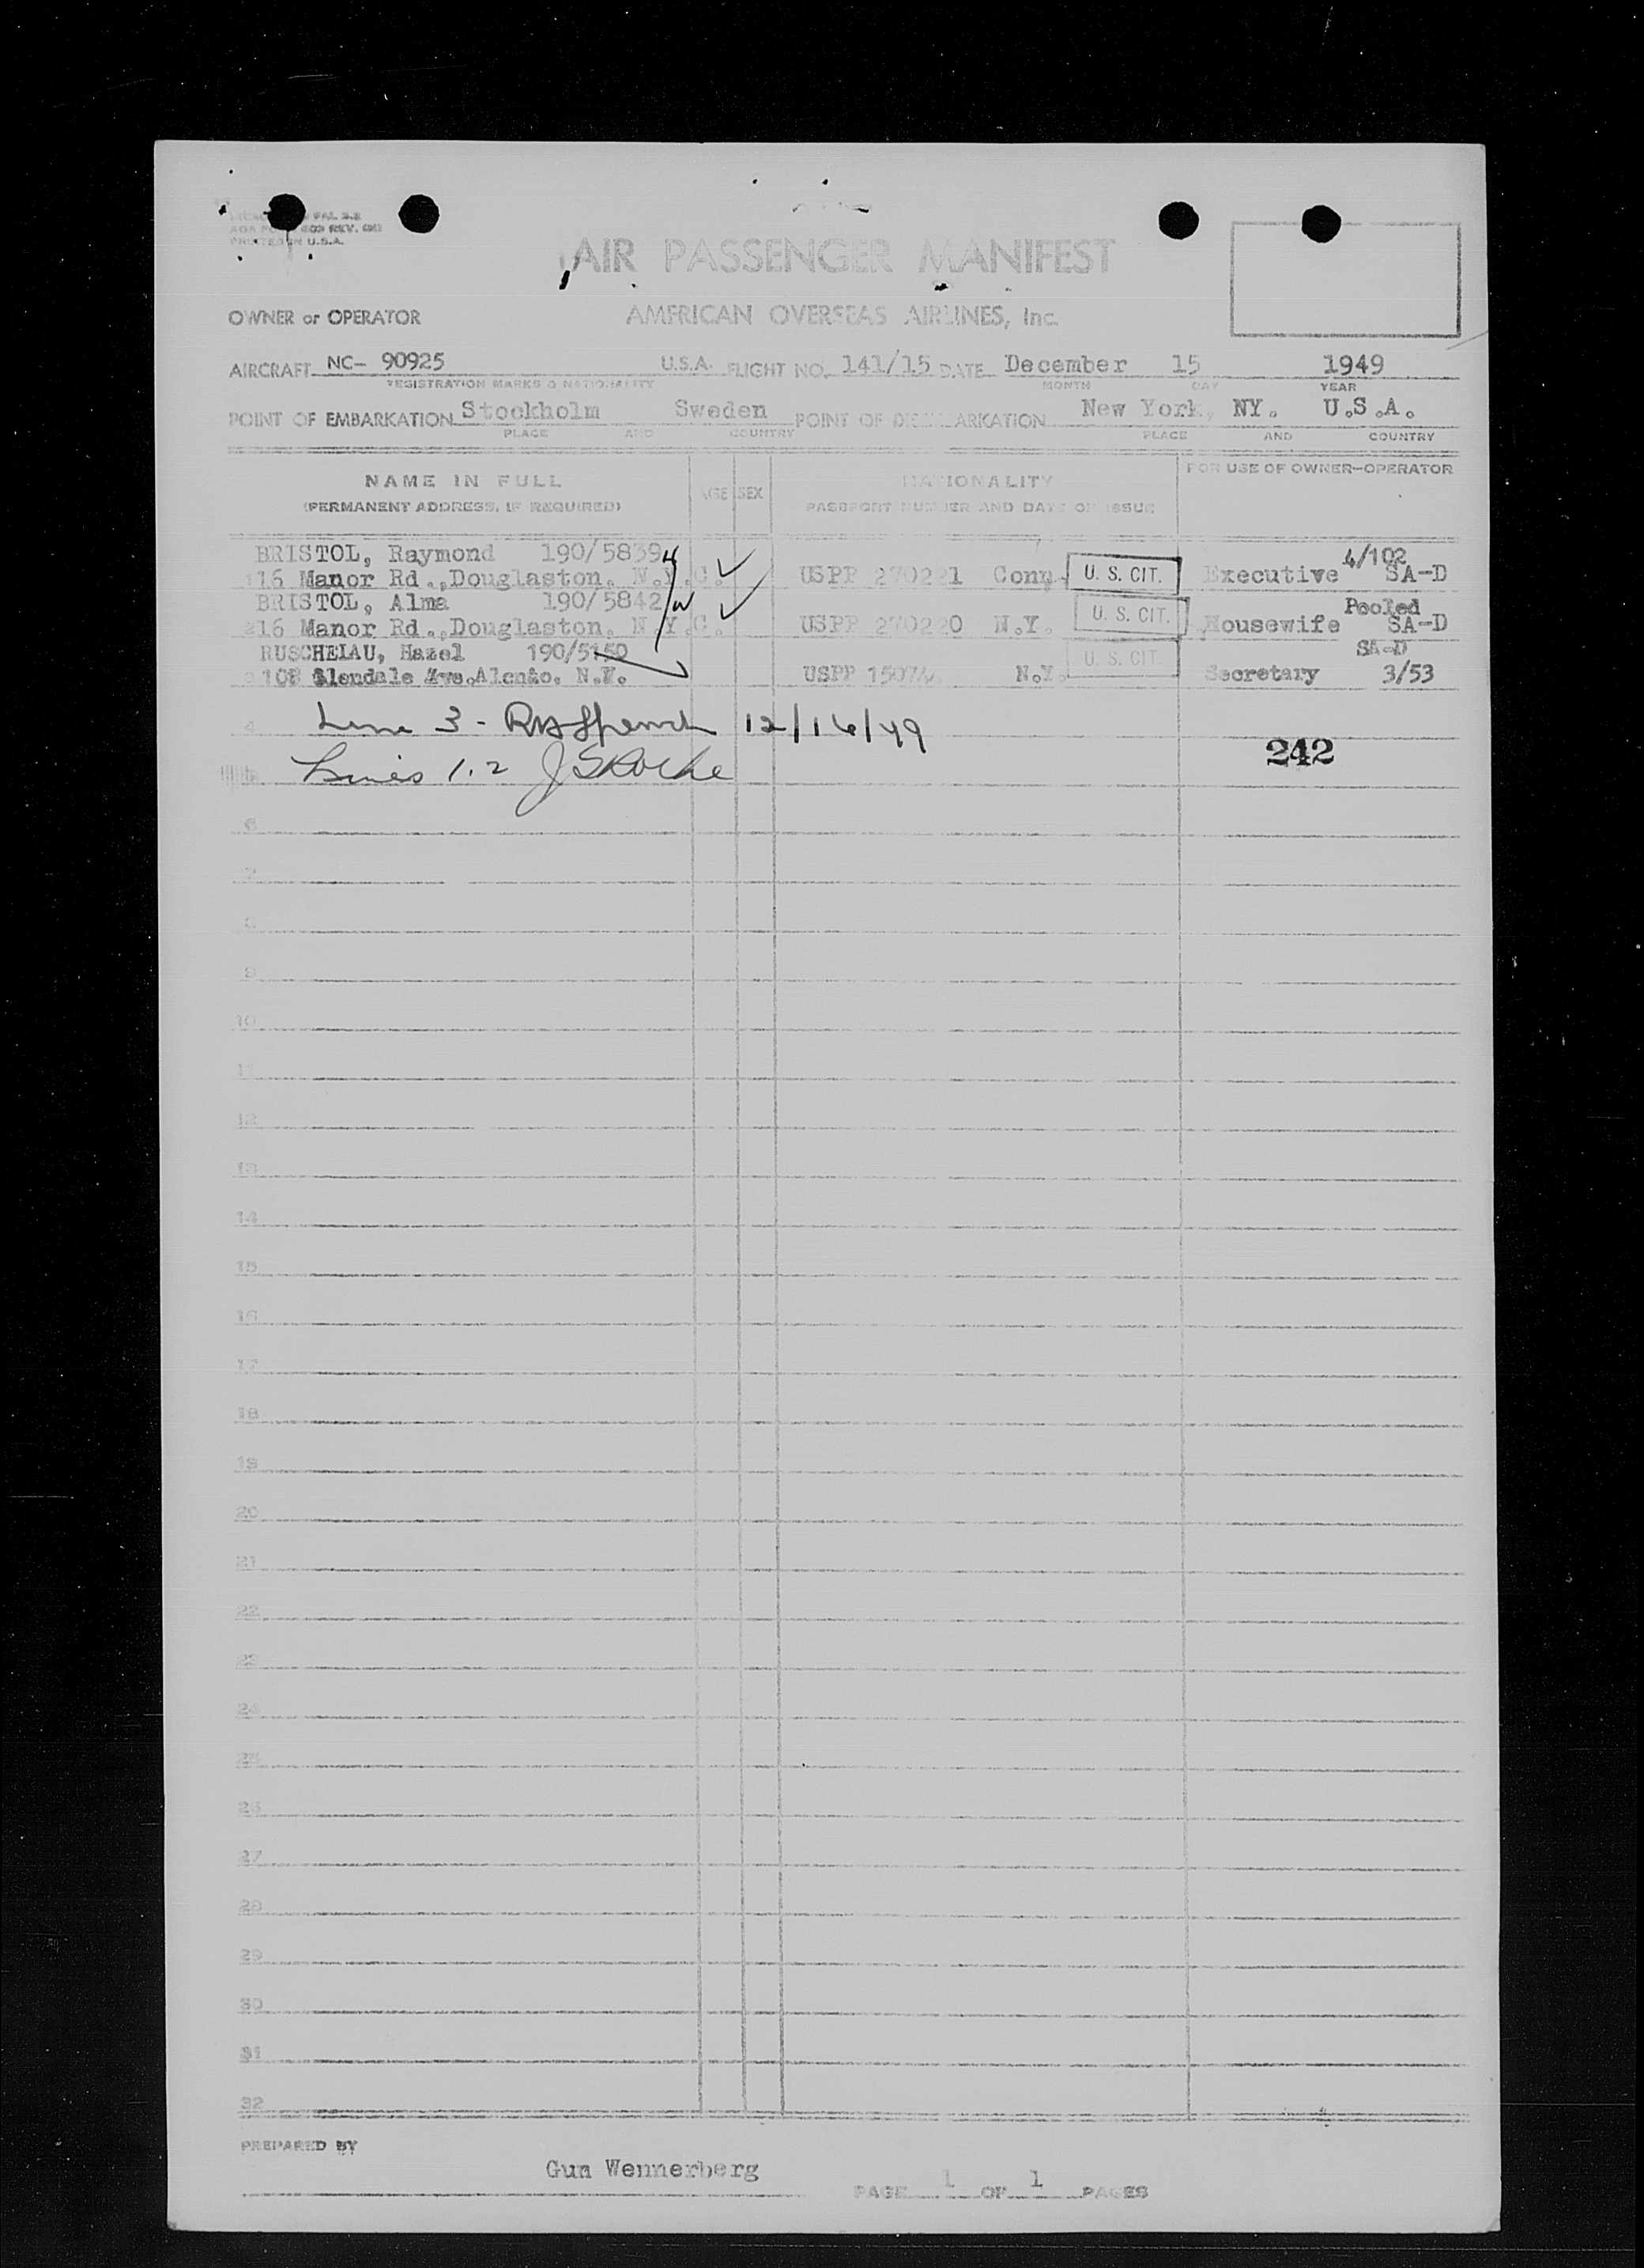 FAL 2.2
REV.
PRINTED IN U.S.A.
AIR PASSENGER MANIFEST
OWNER or OPERATOR AMERICAN OVERSEAS AIRLINES, Inc.
AIRCRAFT NC- 90925 U.S.A. FLIGHT NO. 141/15 DATE December 15 1949
REGISTRATION MARKS & NATIONALITY MONTH DAY YEAR
POINT OF EMBARKATION Stockholm Sweden POINT OF DISEMBARKATION New York, NY. U.S.A.
PLACE AND COUNTRY PLACE AND COUNTRY
NAME IN FULL AGE SEX NATIONALITY FOR USE OF OWNER-OPERATOR
(PERMANENT ADDRESS, IF REQUIRED) PASSPORT NUMBER AND DATE OF ISSUE
BRISTOL, Raymond 190/5839 4/102
1 16 Manor Rd.,Douglaston, N.Y.C. USPP 270221 Conn. U. S. CIT. Executive SA-D
BRISTOL, Alma 190/5842 Pooled
2 16 Manor Rd.,Douglaston, N.Y.C. USPP 270220 N.Y. U. S. CIT. Housewife SA-D
RUSCHELAU, Hazel 190/5150 SA-D
3 108 Glendale Ave. N.Y. USPP N.Y. U. S. CIT. Secretary 3/53
4 Line 3 - 12/16/49
242
5 Lines 1.2 JSRoche
6
7
8
9
10
11
12
13
14
15
16
17
18
19
20
21
22
23
24
25
26
27
28
29
30
31
32
PREPARED BY
Gun Wennerberg
PAGE 1 OF 1 PAGES